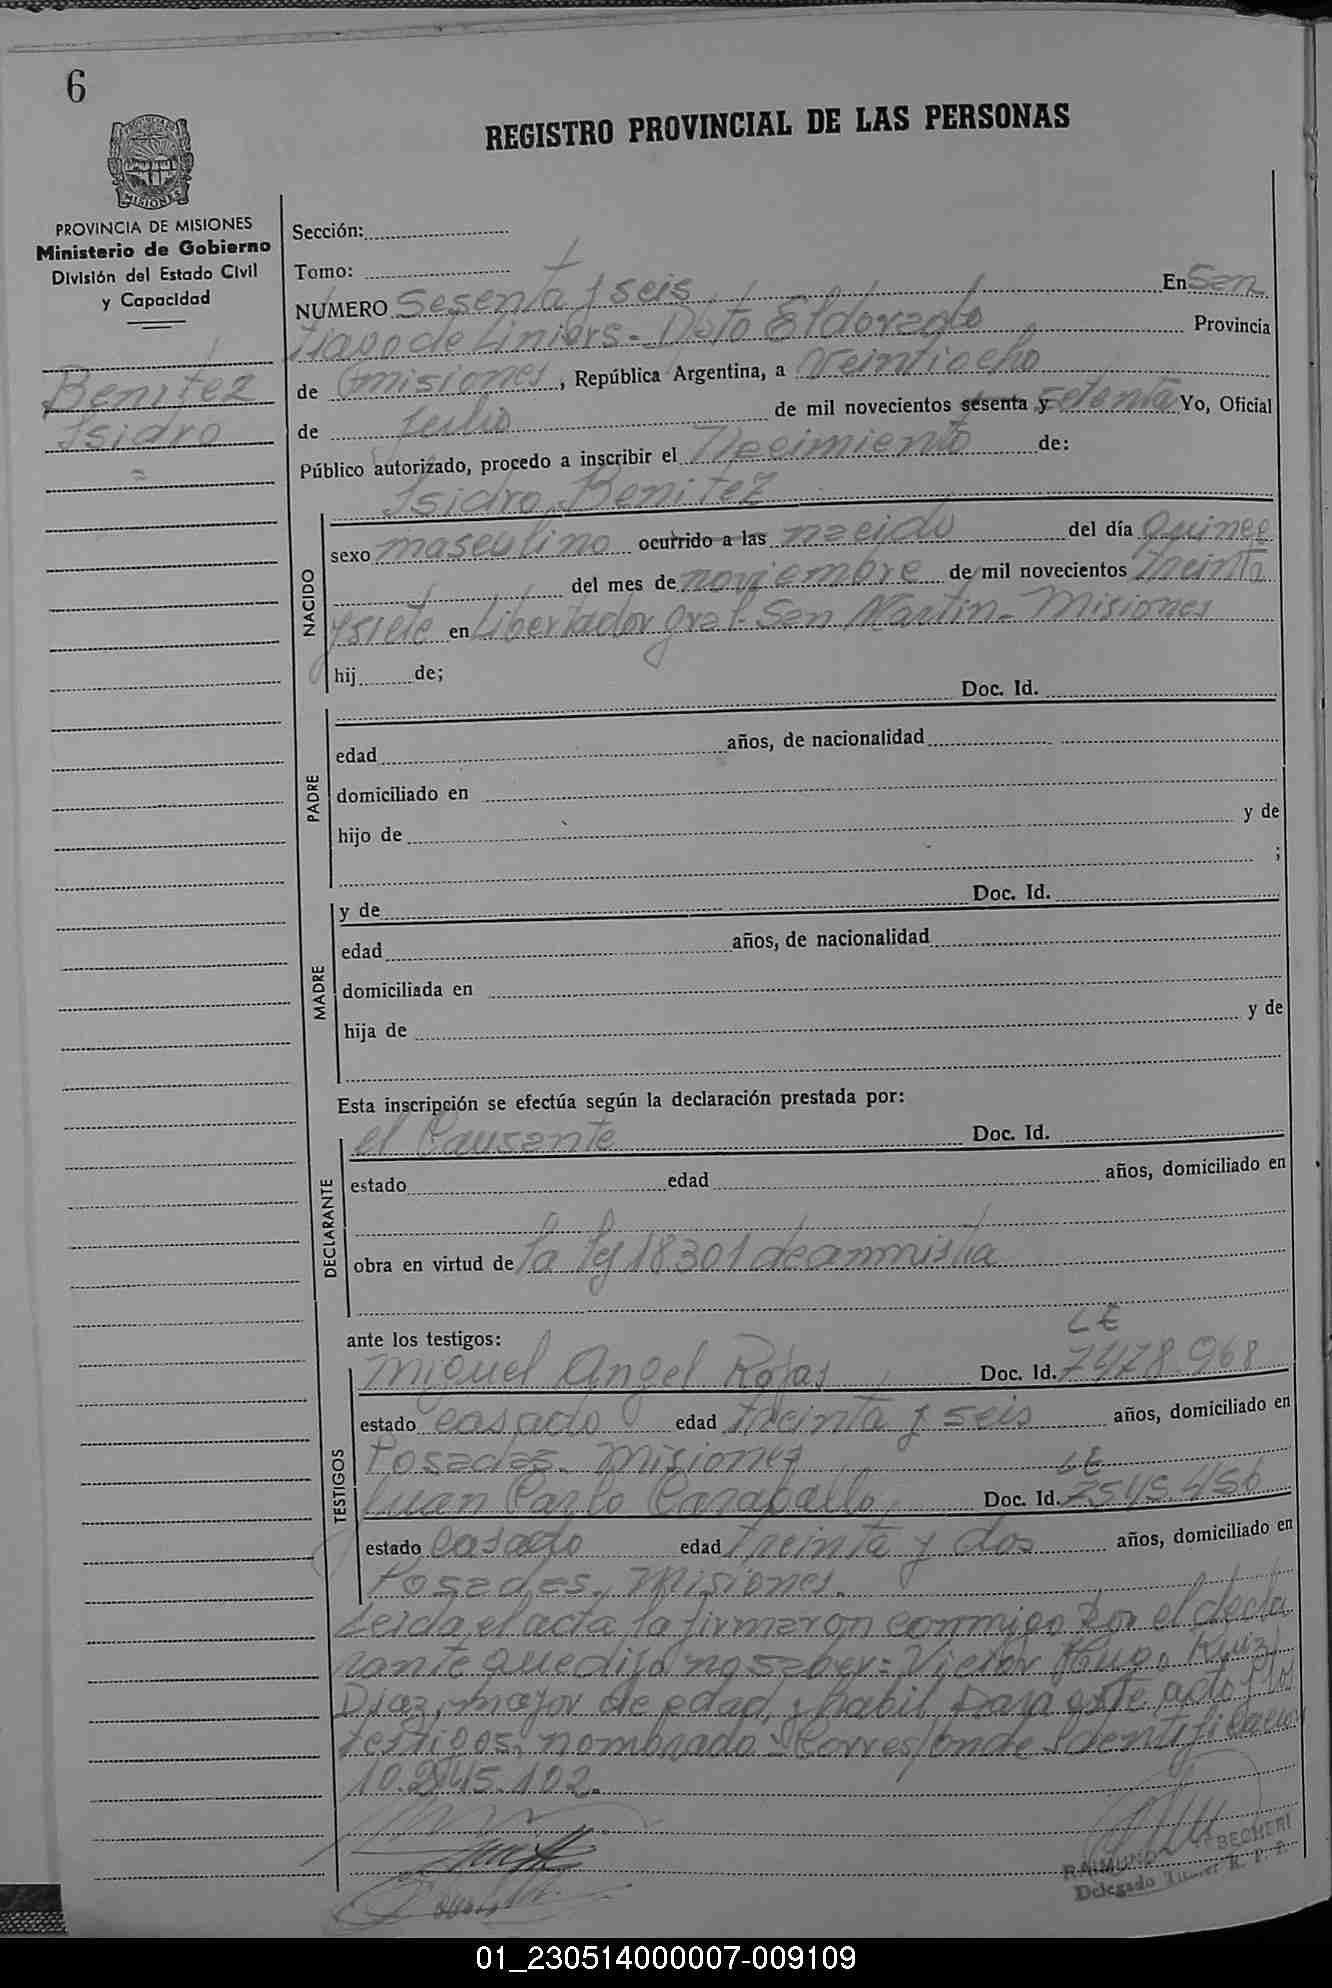 6
REGISTRO PROVINCIAL DE LAS PERSONAS
MISIONES
PROVINCIA DE MISIONES
Ministerio de Gobierno
División del Estado Civil
y Capacidad
Benitez
Isidro
Sección:
Tomo:
NUMERO Sesenta y seis En San
tiago de Liniers - Dpto Eldorado Provincia
de Misiones, República Argentina, a veintiocho
de Julio de mil novecientos sesenta y setenta Yo, Oficial
Público autorizado, procedo a inscribir el Nacimiento de:
Isidro Benitez
NACIDO
sexo masculino ocurrido a las nacido del día Quince
del mes de noviembre de mil novecientos treinta
y siete en Libertador Gral. San Martin - Misiones
hij de;
Doc. Id.
PADRE
edad años, de nacionalidad
domiciliado en
hijo de y de
;
MADRE
y de Doc. Id.
edad años, de nacionalidad
domiciliada en
hija de y de
Esta inscripción se efectúa según la declaración prestada por:
DECLARANTE
el Causante Doc. Id.
estado edad años, domiciliado en
obra en virtud de la ley 18301 de amnistia
ante los testigos:
TESTIGOS
LE
Miguel Angel Rojas Doc. Id. 7478.968
estado casado edad treinta y seis años, domiciliado en
Posadas. Misiones
LE
Juan Carlo Caraballo Doc. Id. 7545.456
estado Casado edad treinta y dos años, domiciliado en
Posadas. Misiones.
Leida el acta la firmaron conmigo Por el decla
rante que dijo no saber: Victor Hugo Ruiz
Diaz, mayor de edad, y habil para este acto y los
testigos nombrado. Corresponde Identificacion
10.2845.102.
RAIMUNDO BECHERI
Delegado Titular R. P. P.
01_230514000007-009109